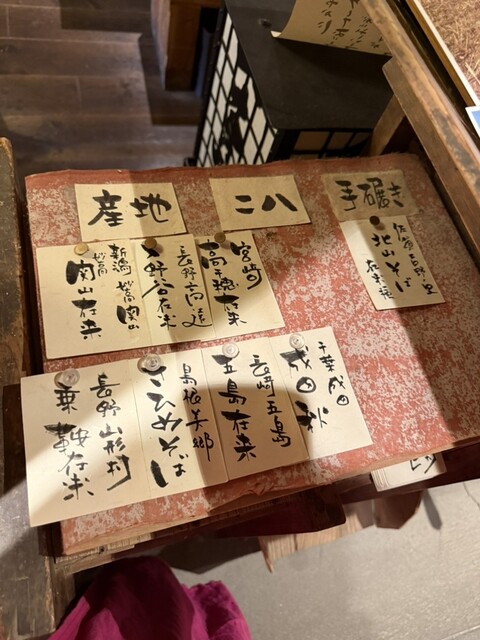 手碾き
二八
産地
佐賀吉野ヶ里
北山そば
在来種
宮崎
高千穂在来
長野高遠
入野谷在来
新潟妙高関山
関山在来
千葉成田
成田秋
長崎五島
五島在来
島根美郷
さひめそば
長野山形村
乗鞍在来